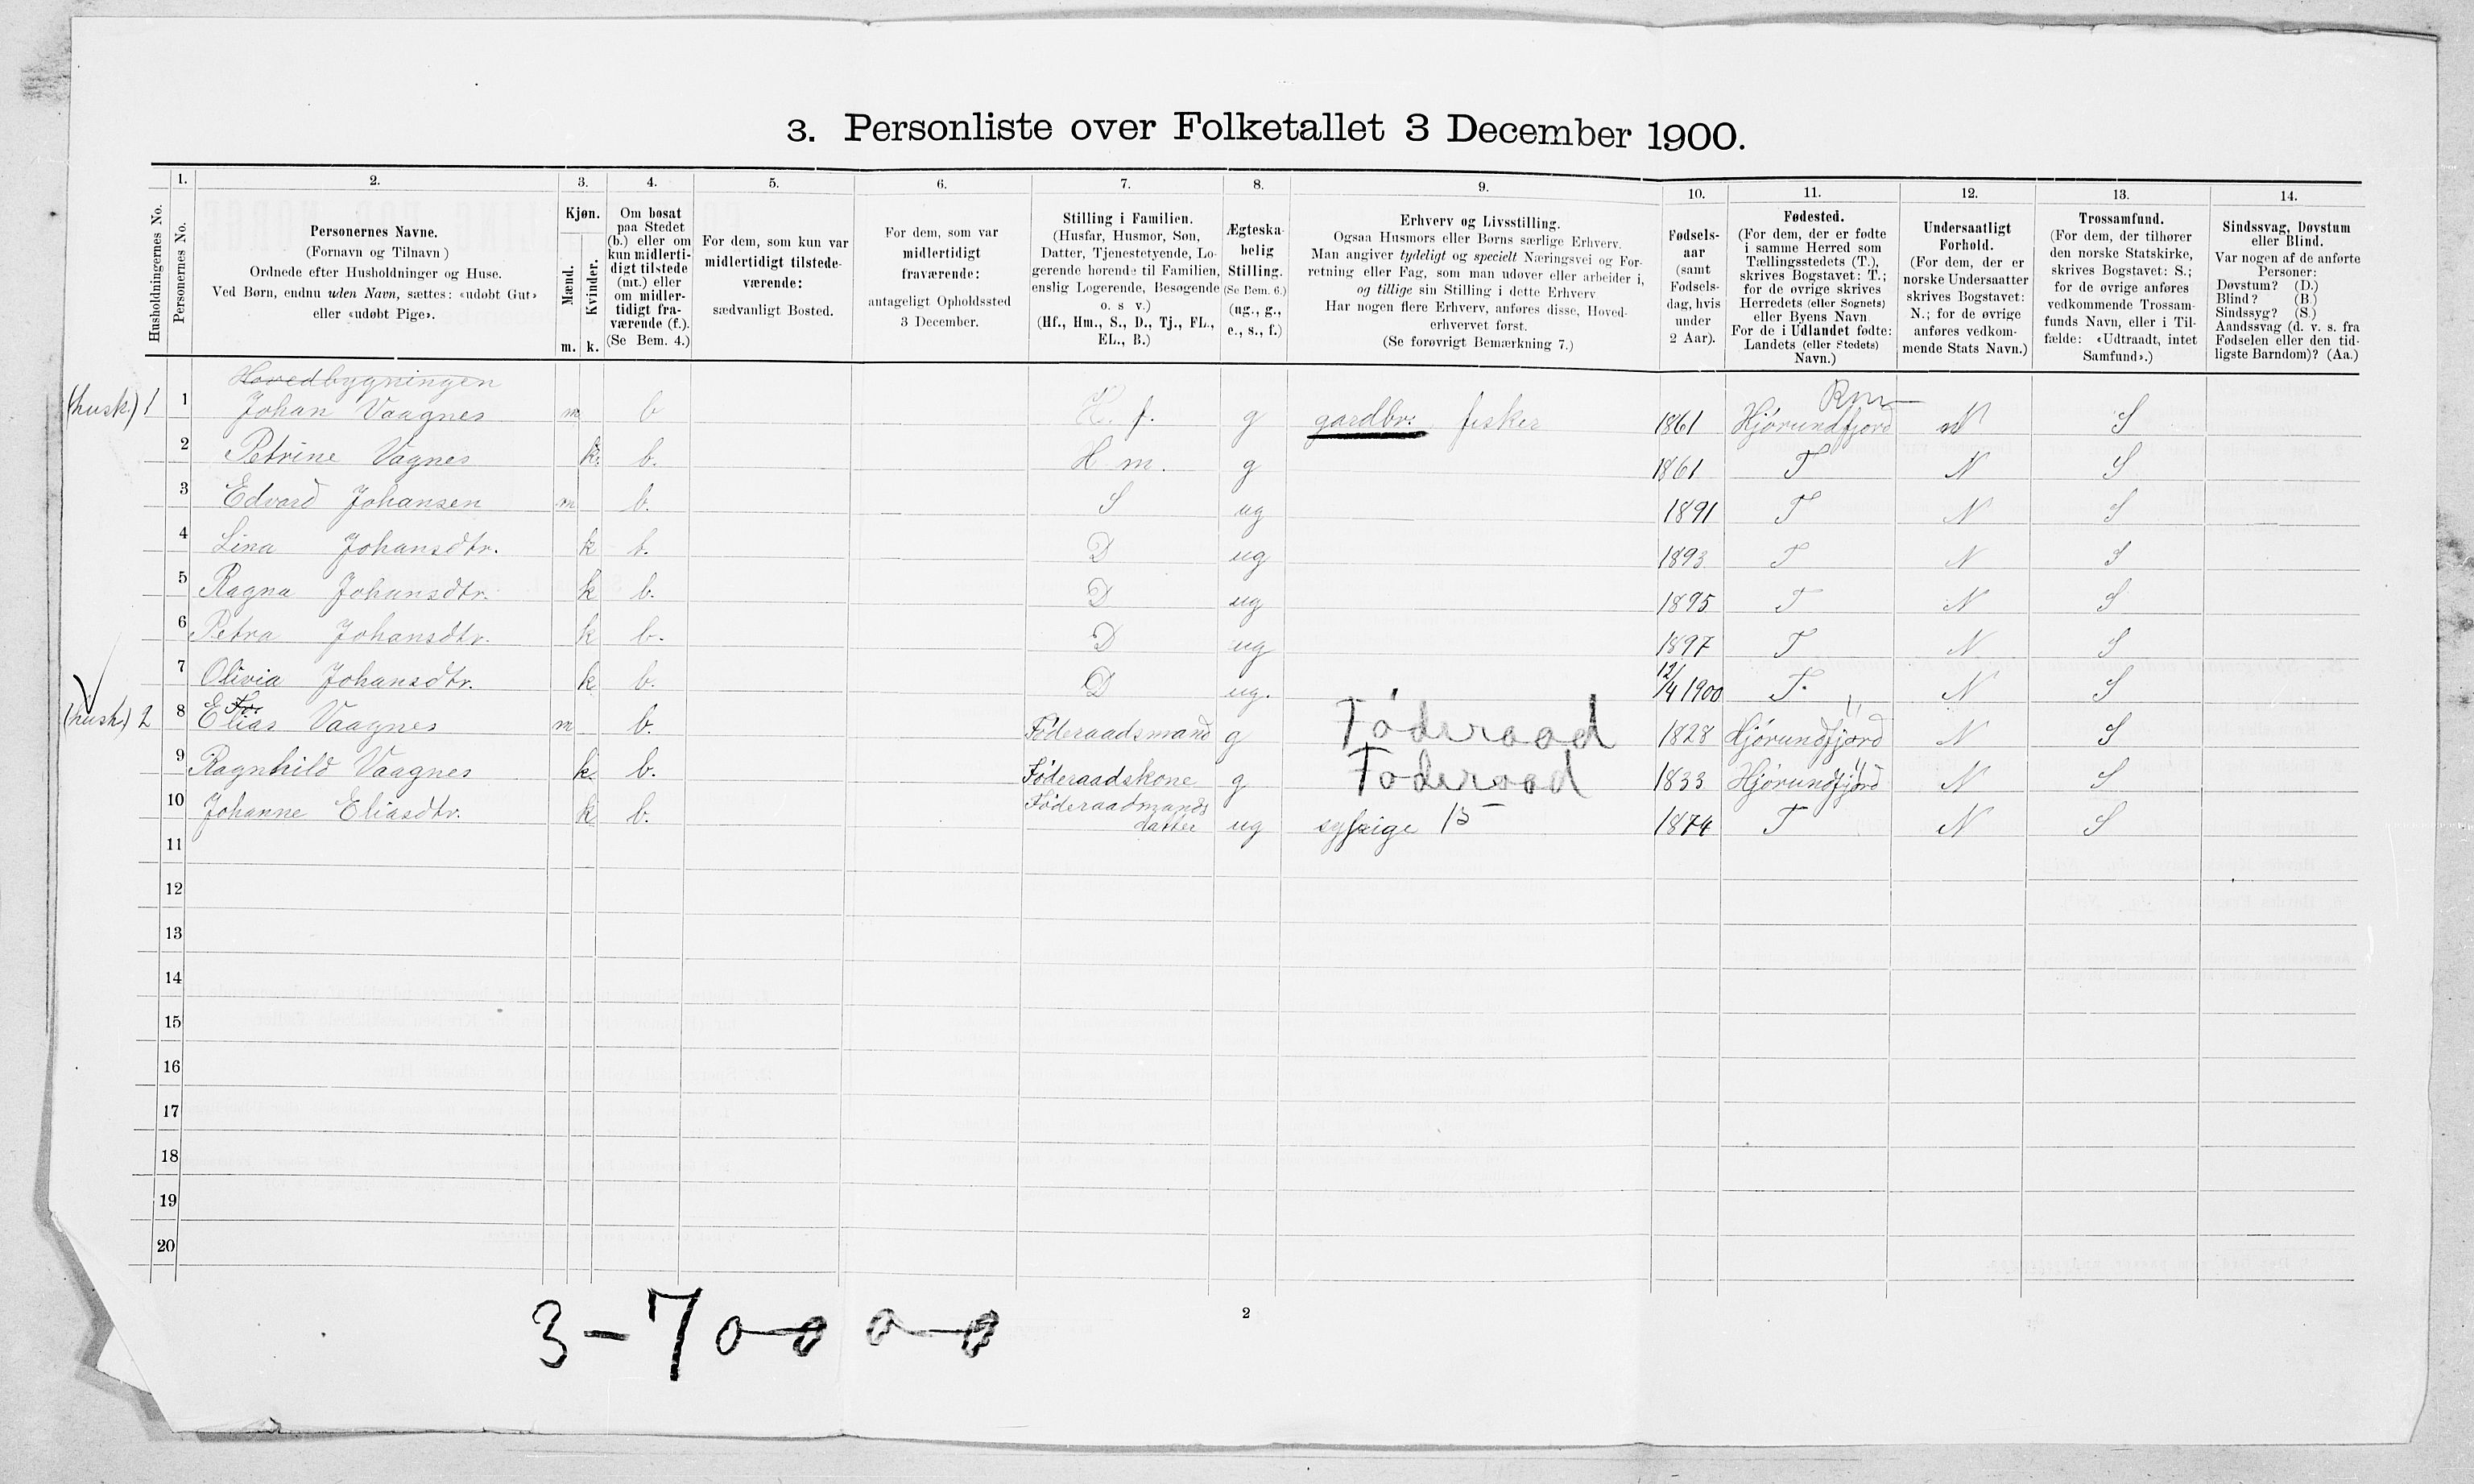 3. Personliste over Folketallet 3 December 1900.
1. 2. 3. 4. 5. 6. 7. 8. 9. 10. 11. 12. 13. 14.
Husholdningernes No.
Personernes No.
Personernes Navne.
(Fornavn og Tilnavn)
Ordnede efter Husholdninger og Huse.
Ved Børn, endnu uden Navn, sættes: «udøbt Gut»
eller «udøbt Pige».
Kjøn.
Mænd.
Kvinder.
m. k.
Om bosat
paa Stedet
(b.) eller om
kun midlerti-
digt tilstede
(mt.) eller
om midler-
tidigt fra-
værende (f.).
(Se Bem. 4.)
For dem, som kun var
midlertidigt tilstede-
værende:
sædvanligt Bosted.
For dem, som var
midlertidigt
fraværende:
antageligt Opholdssted
3 December.
Stilling i Familien.
(Husfar, Husmor, Søn,
Datter, Tjenestetyende, Lo-
gerende hørende til Familien,
enslig Logerende, Besøgende
o. s v.)
(Hf., Hm., S., D., Tj., FL.,
EL., B.)
Ægteska-
belig
Stilling.
(Se Bem. 6.)
(ug., g.,
e., s., f.)
Erhverv og Livsstilling.
Ogsaa Husmors eller Børns særlige Erhverv.
Man angiver tydeligt og specielt Næringsvei og For-
retning eller Fag, som man udøver eller arbeider i,
og tillige sin Stilling i dette Erhverv
Har nogen flere Erhverv, anføres disse, Hoved-
erhvervet først.
(Se forøvrigt Bemærkning 7.)
Fødsels-
aar
(samt
Fødsels-
dag, hvis
under
2 Aar).
Fødested.
(For dem, der er fødte
i samme Herred som
Tællingsstedets (T.),
skrives Bogstavet: T.;
for de øvrige skrives
Herredets (eller Sognets)
eller Byens Navn
For de i Udlandet fødte:
Landets (eller Stedets)
Navn.)
Undersaatligt
Forhold.
(For dem, der er
norske Undersaatter
skrives Bogstavet:
N.; for de øvrige
anføres vedkom-
mende Stats Navn.)
Trossamfund.
(For dem, der tilhører
den norske Statskirke,
skrives Bogstavet: S.;
for de øvrige anføres
vedkommende Trossam-
funds Navn, eller i Til-
fælde: «Udtraadt, intet
Samfund».)
Sindssvag, Døvstum
eller Blind.
Var nogen af de anførte
Personer:
Døvstum? (D.)
Blind? (B.)
Sindssyg? (S.)
Aandssvag (d. v. s. fra
Fødselen eller den tid-
ligste Barndom)? (Aa.)
Hovedbygningen
(husk.) 1 1 Johan Vaagnes m b H. f. g gardbr. fisker 1861 Hjórundfjord N S
2 Petrine Vagnes k. b. H m. g 1861 T N S
3 Edvard Johansen m b. S ug 1891 T N S
4 Lina Johansdtr. k b. D ug 1893 T N S
5 Ragna Johansdtr. k b. D ug 1895 T N S
6 Petra Johansdtr. k b. D ug 1897 T N S
7 Olivia Johansdtr. k b. D ug. 12/4 1900 T. N S
(husk) 2 8 Elias Vaagnes m b. Fóderaadsmand g Fóderaad 1828 Hjórundfjord N S
9 Ragnhild Vaagnes k. b. Fóderaadskone g Foderaad 1833 Hjórundfjord N S
10 Johanne Eliasdtr. k b. Fóderaadmands datter ug sypige 15 1874 T N S
11
12
13
14
15
16
17
18
19
20
3-7 0-0 0-0
2